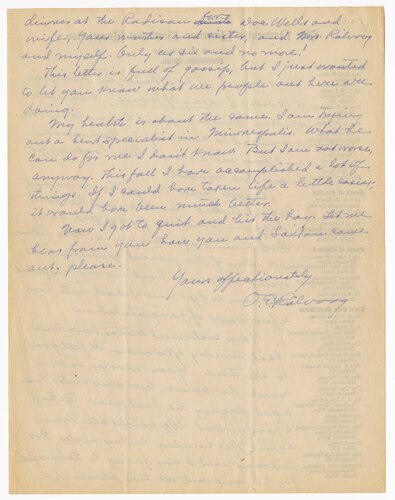 dinner at the Radison for Doc Wells and
wife, Your mother and sister, and Mrs. Rölvaag
and myself. Only us six and no more!
This letter is full of gossip, but I just wanted
to let you know what we people out here are
doing.
My health is about the same. I am trying
out a heart specialist in Minneapolis. What he
can do for me I don't know. But I am not worse,
anyway. This fall I have accomplished a lot of
things. If I could have taken life a little easier,
it would have been much better.
Now I got to quit and hit the hay. Let me
hear from you how you and Saxton came
out, please.
Yours affectionately
O. E. Rölvaag